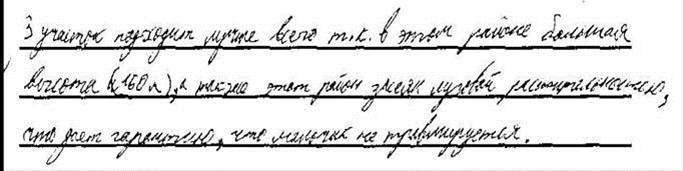 3 участок подходит лучше всего т.к. в этом районе большая
высота (160 м), а также этот район засеян луговой растительностью,
что дает гарантию, что мальчик не травмируется.